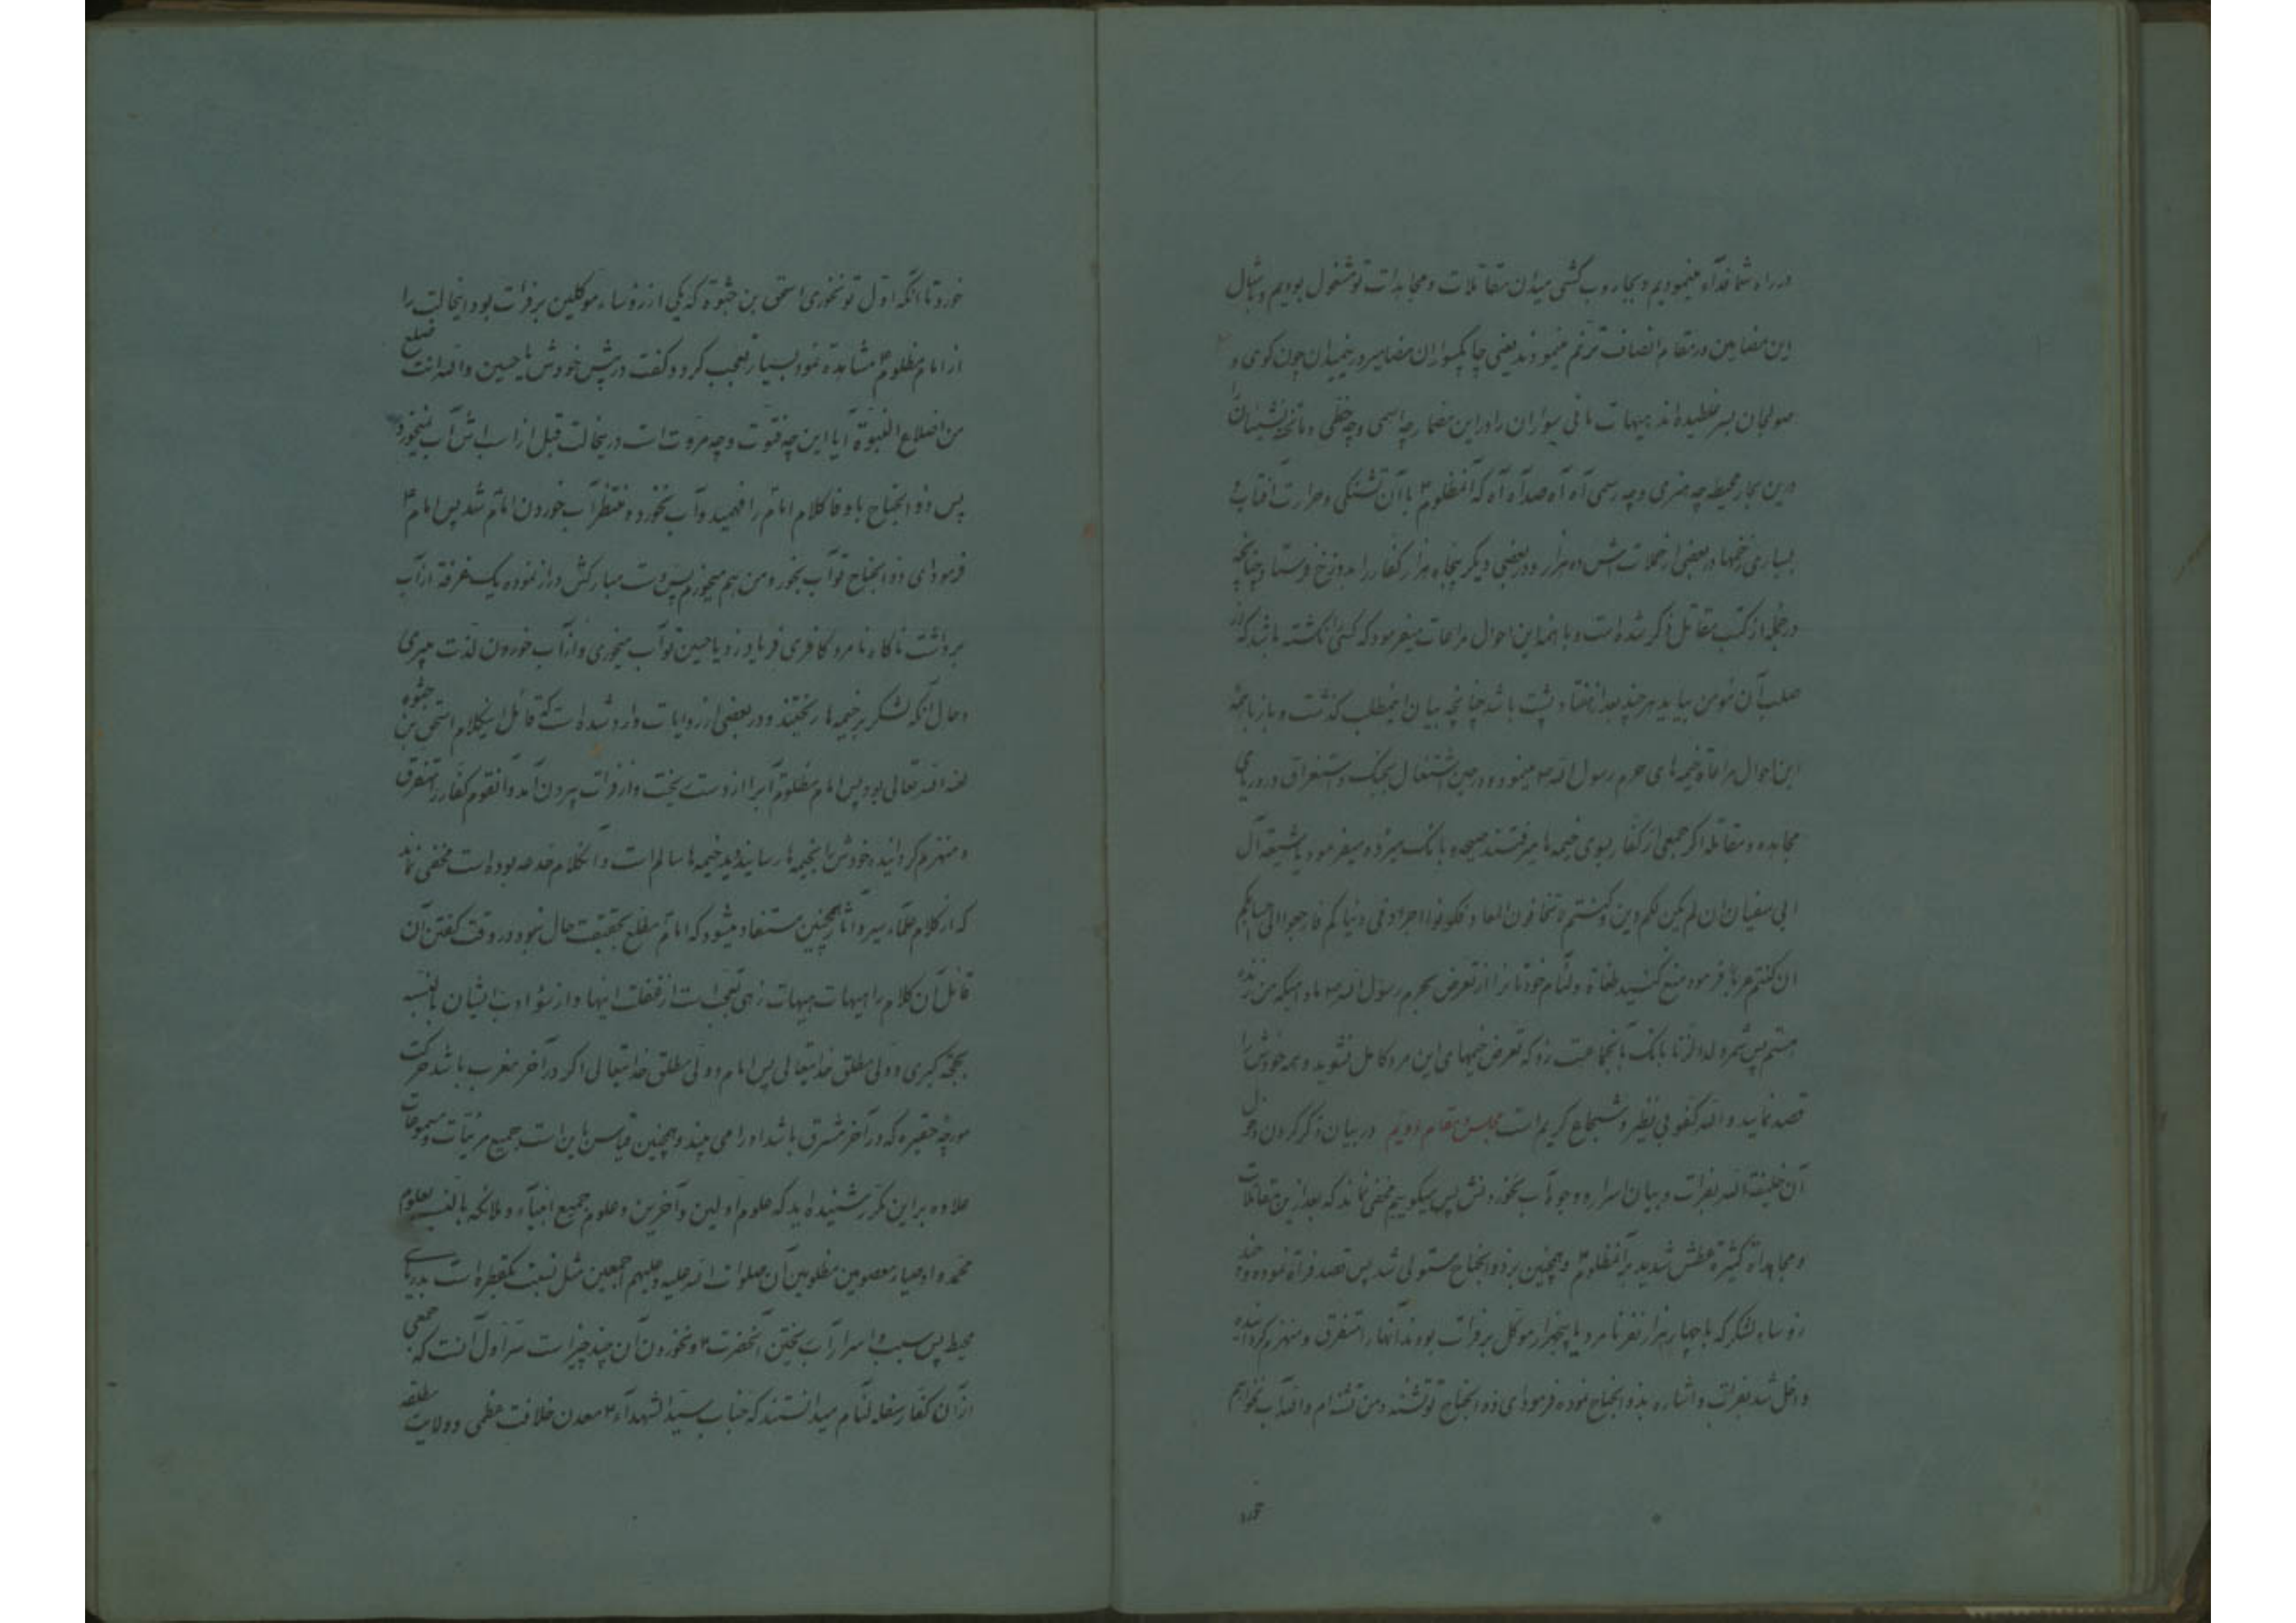 در راه شما فدآء مینمودیم و بجاروب کشی میدان مقاتلات و مجاهدات تو مشغول بودیم و بمثال
این مضامین در مقام انصاف ترنم مینمودند یعنی چابکسواران مضامیر در میدان چون کوی و
صولجان بسر غلطیده‌اند هیهات مانی سواران را در این مضمار چه اسمی و چه خطی و ما تخته نشینان را
درین بحار محیطه چه هنری و چه رسمی آه آه صد آه آه که آنمظلوم ۴ با آن تشنکی و حرارت آفتاب و
بسیاری زخمها در بعضی از حملات‌ش ده هزار و در بعضی دیگر پنجاه هزار کفار را بدوزخ فرستاد چنانچه
در جمله از کتب مقاتل ذکر شده است و با همه این احوال مراعات میفرمود که کسی را نکشته باشد که از
صلب آن مؤمن بیاید هر چند بعد از هفتاد پشت باشد چنانچه بیان اینمطلب کذشت و باز با همه
این احوال مراعاة خیمه‌های حرم رسول الله ص مینمود و در حین اشتغال بجنک و استغراق در دریای
مجاهده و مقاتله اکر جمعی از کفار بسوی خیمه‌ها میرفتند صیحه و بانک میزد و میفرمود یا شیعة آل
ابی سفیان ان لم یکن لکم دین و کنتم لا تخافون المعاد فکونوا احرارا فی دنیاکم فارجعوا الی احسابکم
ان کنتم عربا فرمود منع کنید طغاة و لئام خودتانرا از تعرض بحرم رسول الله ص مادامیکه من زنده
هستم پس شمر ولد الزنا بانک بآنجماعت زد که تعرض خیمهای این مرد کامل نشوید و همه خودش را
قصد نمایید والله کفو بی نظیر و شجاع کریم است مجلس مقام دویم در بیان ذکر کردن دخول
آن خلیفة الله بفرات و بیان اسرار و وجوه آب نخوردنش پس میکوییم مخفی نماند که بعد ازین مقاتلات
و مجاهداة کثیرة عطش شدید بر آنمظلوم ۴ و همچنین بر ذو الجناح مستولی شد پس قصد فرات نموده و چند
رؤساء لشکر که با چهار هزار نفر نامرد یا پنجهزار موکل بر فرات بودند آنها را متفرق و منهزم کردانیده
داخل شد بفرات و اشاره بذو الجناح نموده فرمود ای ذو الجناح تو تشنه و من تشنه‌ام والله آب نخواهم
خورد تا انکه اول تو نخوری اسحق بن جثوة که یکی از رؤساء موکلین بر فرات بود اینحالت را
از امام مظلوم ۴ مشاهدة نمود بسیار تعجب کرد و کفت در پیش خودش یا حسین والله انت ضلع
من اضلاع النبوة آیا این چه فتوت و چه مروت است در اینحالت قبل از اسب‌ش آب نمیخورد
پس ذو الجناح با وفا کلام امام را فهمید و آب نخورد و منتظر آب خوردن امام شد پس امام ۴
فرمود ای ذو الجناح تو آب بخور و من هم میخورم پس دست مبارکش دراز نموده یک غرفة از آب
برداشت ناکاه نامرد کافری فریاد زد یا حسین تو آب میخوری و از آب خوردن لذت میبری
و حال آنکه لشکر بر خیمه‌ها ریختند و در بعضی از روایات وارد شده است که قائل اینکلام اسحق بن جثوه
لعنه الله تعالی بود پس امام مظلوم آبرا از دست ریخت و از فرات بیرون آمد و آنقوم کفار را متفرق
و منهزم کردانیده خودش را بخیمه‌ها رسانید دید خیمه‌ها سالم است و آنکلام خدعه بوده است مخفی نماند
که از کلام علماء سیر و آثار چنین مستفاد میشود که امام مطلع بحقیقت حال نبود در وقت کفتن آن
قائل آن کلام را هیهات هیهات زهی تعجب است از غفلت اینها و از سؤ ادب ایشان بالنسبه
بحجة کبری و ولی مطلق خدایتعالی پس امام و ولی مطلق خدایتعالی اکر در آخر مغرب باشد حرکت
مورچه حقیره که در آخر مشرق باشد او را می بیند و همچنین قیاس باین است جمیع مرئیات و مسموعات
علاوه بر این مکرر شنیده‌اید که علوم اولین و آخرین و علوم جمیع انبیآء و ملائکه بالنسبه بعلوم
محمد و اوصیاء معصومین مظلومین آن صلوات الله علیه و علیهم اجمعین مثل نسبت یکقطره است بدریای
محیط پس سبب و اسرار آب ریختن آنحضرت ۴ و نخوردن آن چند چیز است سر اول آنست که جمعی
از آن کفار سفله لئام میدانستند که جناب سید الشهدآء ۴ معدن خلافت عظمی و ولایت مطلقه
خورد